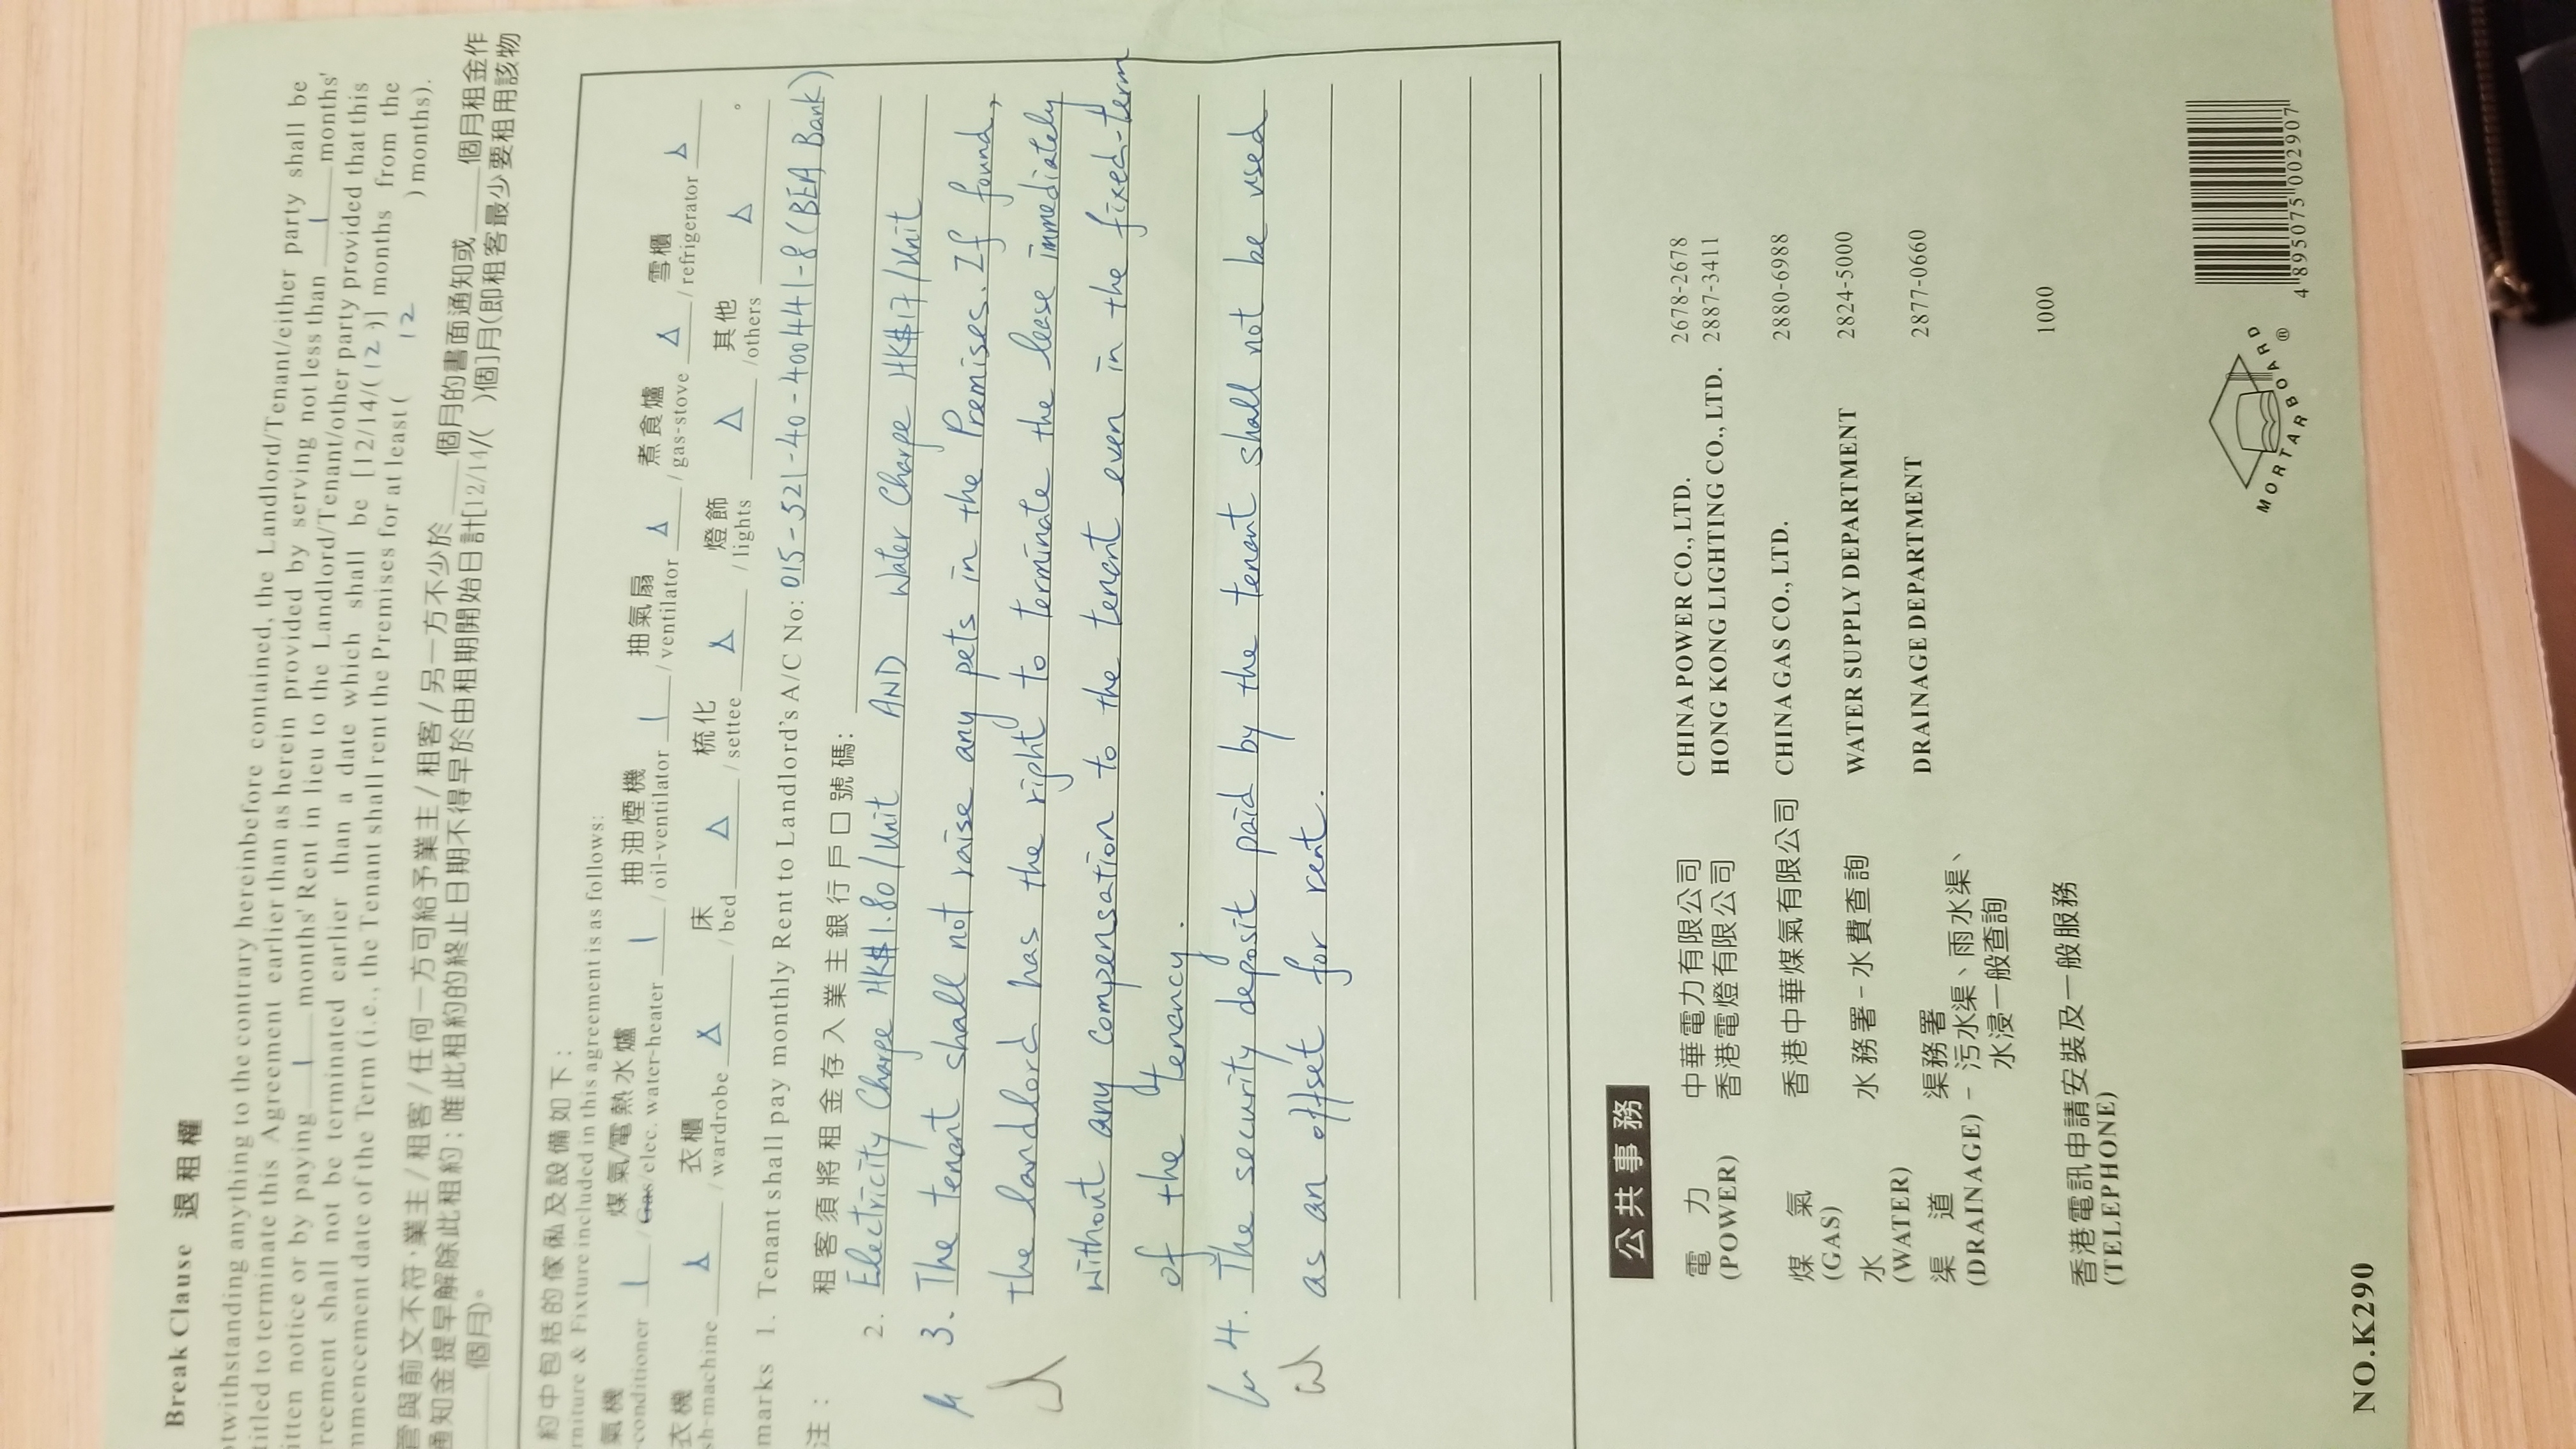 Break Clause 退租權
otwithstanding anything to the contrary hereinbefore contained, the Landlord/Tenant/either party shall be
titled to terminate this Agreement earlier than as herein provided by serving not less than 1 months'
itten notice or by paying 1 months' Rent in lieu to the Landlord/Tenant/other party provided that this
reement shall not be terminated earlier than a date which shall be [12/14/( 12 )] months from the
mmencement date of the Term (i.e., the Tenant shall rent the Premises for at least ( 12 ) months).
管與前文不符，業主/租客/任何一方可給予業主/租客/另一方不少於____個月的書面通知或____個月租金作
通知金提早解除此租約；唯此租約的終止日期不得早於由租期開始日計[12/14/( )個]月(即租客最少要租用該物
____個月)。
約中包括的傢俬及設備如下：
rniture & Fixture included in this agreement is as follows:
氣機 煤氣/電熱水爐 抽油煙機 抽氣扇 煮食爐 雪櫃
-conditioner 1 / Gas/elec. water-heater 1 / oil-ventilator 1 / ventilator △ / gas-stove △ / refrigerator △
衣機 衣櫃 床 梳化 燈飾 其他
sh-machine △ / wardrobe X / bed △ / settee X / lights △ / others △ 。
marks 1. Tenant shall pay monthly Rent to Landlord's A/C No: 015-521-40-40044 1-8 (BEA Bank)
注： 租客須將租金存入業主銀行戶口號碼:
2. Electricity Charge HK$1.80/Unit AND Water Charge HK$17/Unit
3. The tenant shall not raise any pets in the Premises. If found,
the landlord has the right to terminate the lease immediately
without any compensation to the tenant even in the fixed-term
of the tenancy.
4. The security deposit paid by the tenant shall not be used
as an offset for rent.
公共事務
電力 中華電力有限公司 CHINA POWER CO., LTD. 2678-2678
(POWER) 香港電燈有限公司 HONG KONG LIGHTING CO., LTD. 2887-3411
煤氣 香港中華煤氣有限公司 CHINA GAS CO., LTD. 2880-6988
(GAS)
水 水務署－水費查詢 WATER SUPPLY DEPARTMENT 2824-5000
(WATER)
渠道 渠務署 DRAINAGE DEPARTMENT 2877-0660
(DRAINAGE) － 污水渠、雨水渠、
水浸一般查詢
香港電訊申請安裝及一般服務 1000
(TELEPHONE)
NO.K290
MORTARBOARD ®
4 895075 002907